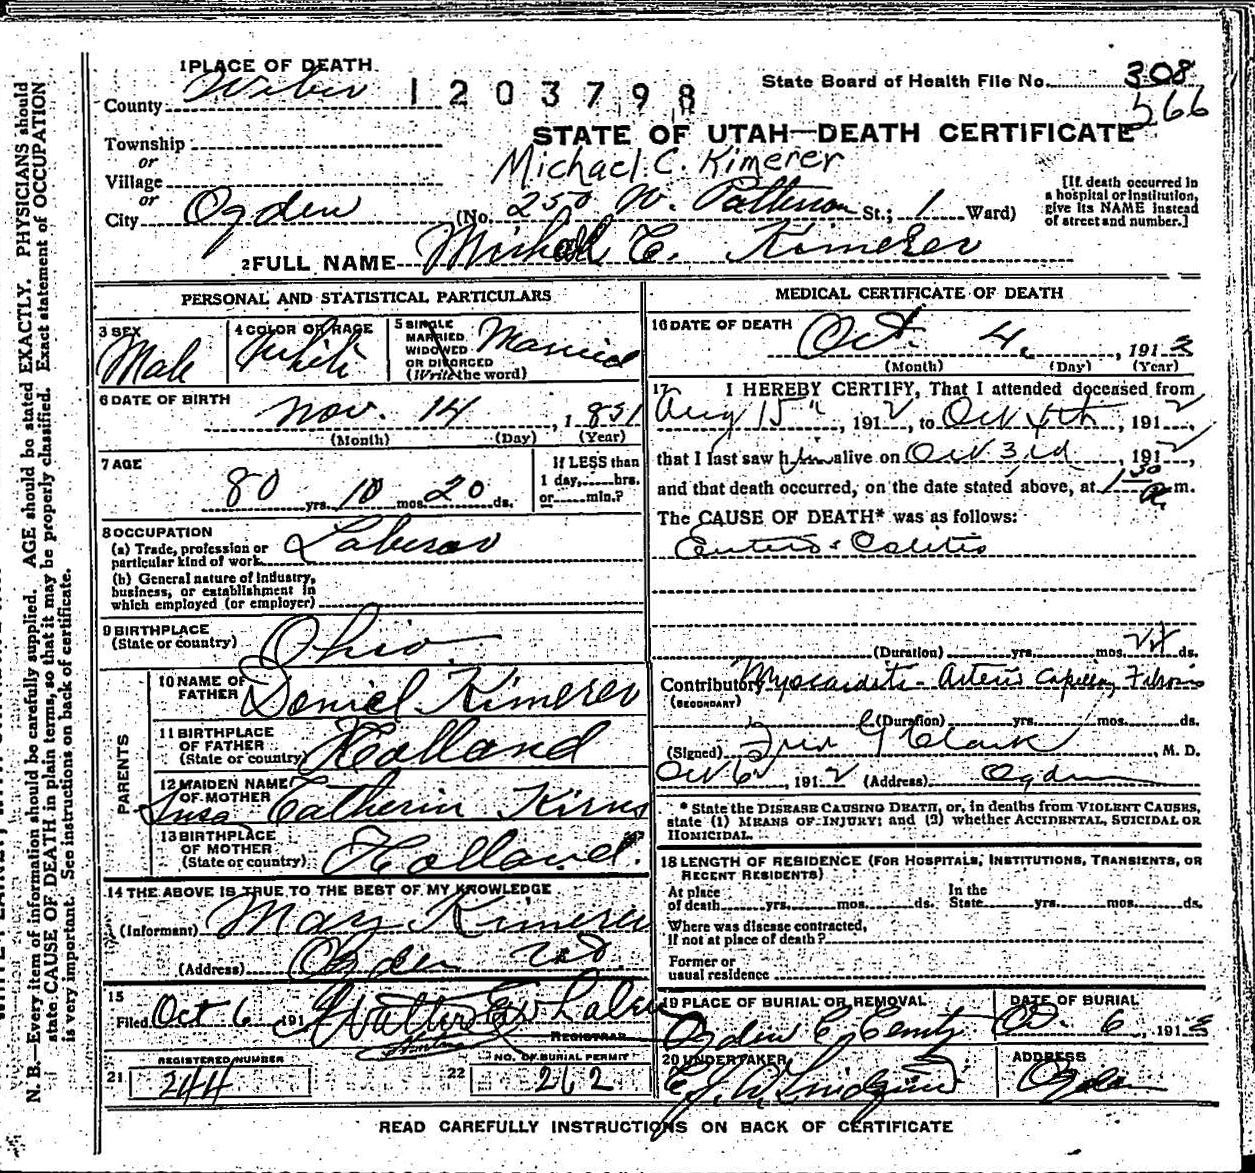 1 PLACE OF DEATH
County Weber 1203798
State Board of Health File No. 308
566
Township
or
Village
or
STATE OF UTAH—DEATH CERTIFICATE
Michael C. Kimerer
City Ogden (No. 250 W. Patterson St.; 1 Ward)
[If death occurred in
a hospital or institution,
give its NAME instead
of street and number.]
2 FULL NAME Michael C. Kimerer
PERSONAL AND STATISTICAL PARTICULARS
3 SEX
Male
4 COLOR OR RACE
White
5 SINGLE
MARRIED
WIDOWED
OR DIVORCED
(Write the word)
Married
6 DATE OF BIRTH
Nov. 14, 1831
(Month) (Day) (Year)
7 AGE
80 yrs. 10 mos. 20 ds.
If LESS than
1 day, hrs.
or min.?
8 OCCUPATION
(a) Trade, profession or
particular kind of work Laborer
(b) General nature of industry,
business, or establishment in
which employed (or employer)
9 BIRTHPLACE
(State or country) Ohio
PARENTS
10 NAME OF
FATHER Daniel Kimerer
11 BIRTHPLACE
OF FATHER
(State or country) Holland
12 MAIDEN NAME
OF MOTHER
Susa Catherin Kirns
13 BIRTHPLACE
OF MOTHER
(State or country) Holland.
14 THE ABOVE IS TRUE TO THE BEST OF MY KNOWLEDGE
(Informant) Mary Kimerer
(Address) Ogden
15
Filed Oct 6, 191
REGISTRAR
REGISTERED NUMBER
21 244
NO. OF BURIAL PERMIT
22 262
MEDICAL CERTIFICATE OF DEATH
16 DATE OF DEATH
Oct. 4, 1912
(Month) (Day) (Year)
17 I HEREBY CERTIFY, That I attended deceased from
Aug 15", 1912, to Oct 4th, 1912,
that I last saw him alive on Oct 3rd, 1912,
and that death occurred, on the date stated above, at 1 30 a. m.
The CAUSE OF DEATH* was as follows:
Entero-Colitis
(Duration) yrs. mos. ds.
Contributory Myocarditis - Arterio Capillary Fibrosis
(SECONDARY)
(Duration) yrs. mos. ds.
(Signed) Clark, M. D.
Oct 6, 1912 (Address) Ogden
* State the DISEASE CAUSING DEATH, or, in deaths from VIOLENT CAUSES,
state (1) MEANS OF INJURY; and (2) whether ACCIDENTAL, SUICIDAL OR
HOMICIDAL.
18 LENGTH OF RESIDENCE (FOR HOSPITALS, INSTITUTIONS, TRANSIENTS, OR
RECENT RESIDENTS)
At place
of death yrs. mos. ds.
In the
State yrs. mos. ds.
Where was disease contracted,
if not at place of death?
Former or
usual residence
19 PLACE OF BURIAL OR REMOVAL
Ogden C. Cemty
DATE OF BURIAL
Oct. 6, 1912
20 UNDERTAKER
Lindquist
ADDRESS
Ogden
READ CAREFULLY INSTRUCTIONS ON BACK OF CERTIFICATE
N. B.—Every item of information should be carefully supplied. AGE should be stated EXACTLY. PHYSICIANS should
state CAUSE OF DEATH in plain terms, so that it may be properly classified. Exact statement of OCCUPATION
is very important. See instructions on back of certificate.